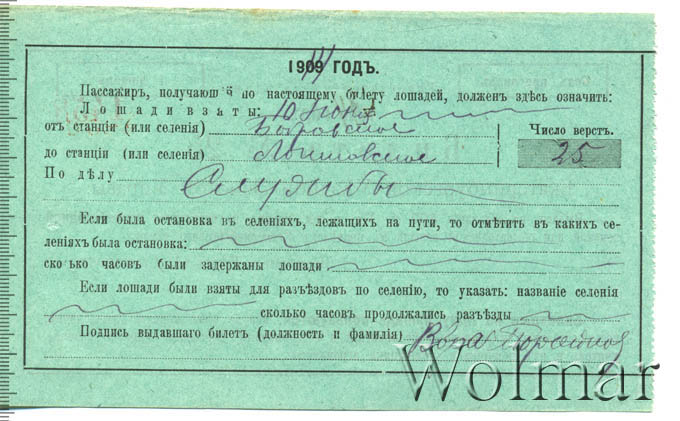 1909 ГОДЪ.
Пассажиръ, получающй по настоящему билету лошадей, долженъ здѣсь означить:
Лошади взяты: 10
отъ станціи (или селенія) Число верстъ.
до станціи (или селенія) 25
По дѣлу Службы
Если была остановка въ селеніяхъ, лежащихъ на пути, то отмѣтить въ какихъ се-
леніяхъ была остановка:
ско ько часовъ были задержаны лошади
Если лошади были взяты для разъѣздовъ по селенію, то указать: названіе селенія
сколько часовъ продолжались разъѣзды
Подпись выдавшаго билетъ (должность и фамилія)
Wolmar